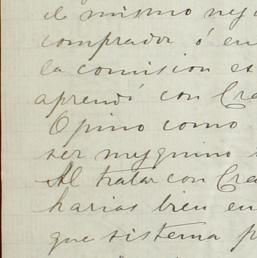 el mismo neg
comprador ó en
la comision es
aprendí con Cra
Opino como
ser mezquino
Al tratar con Cra
harias bien en
que sistema p